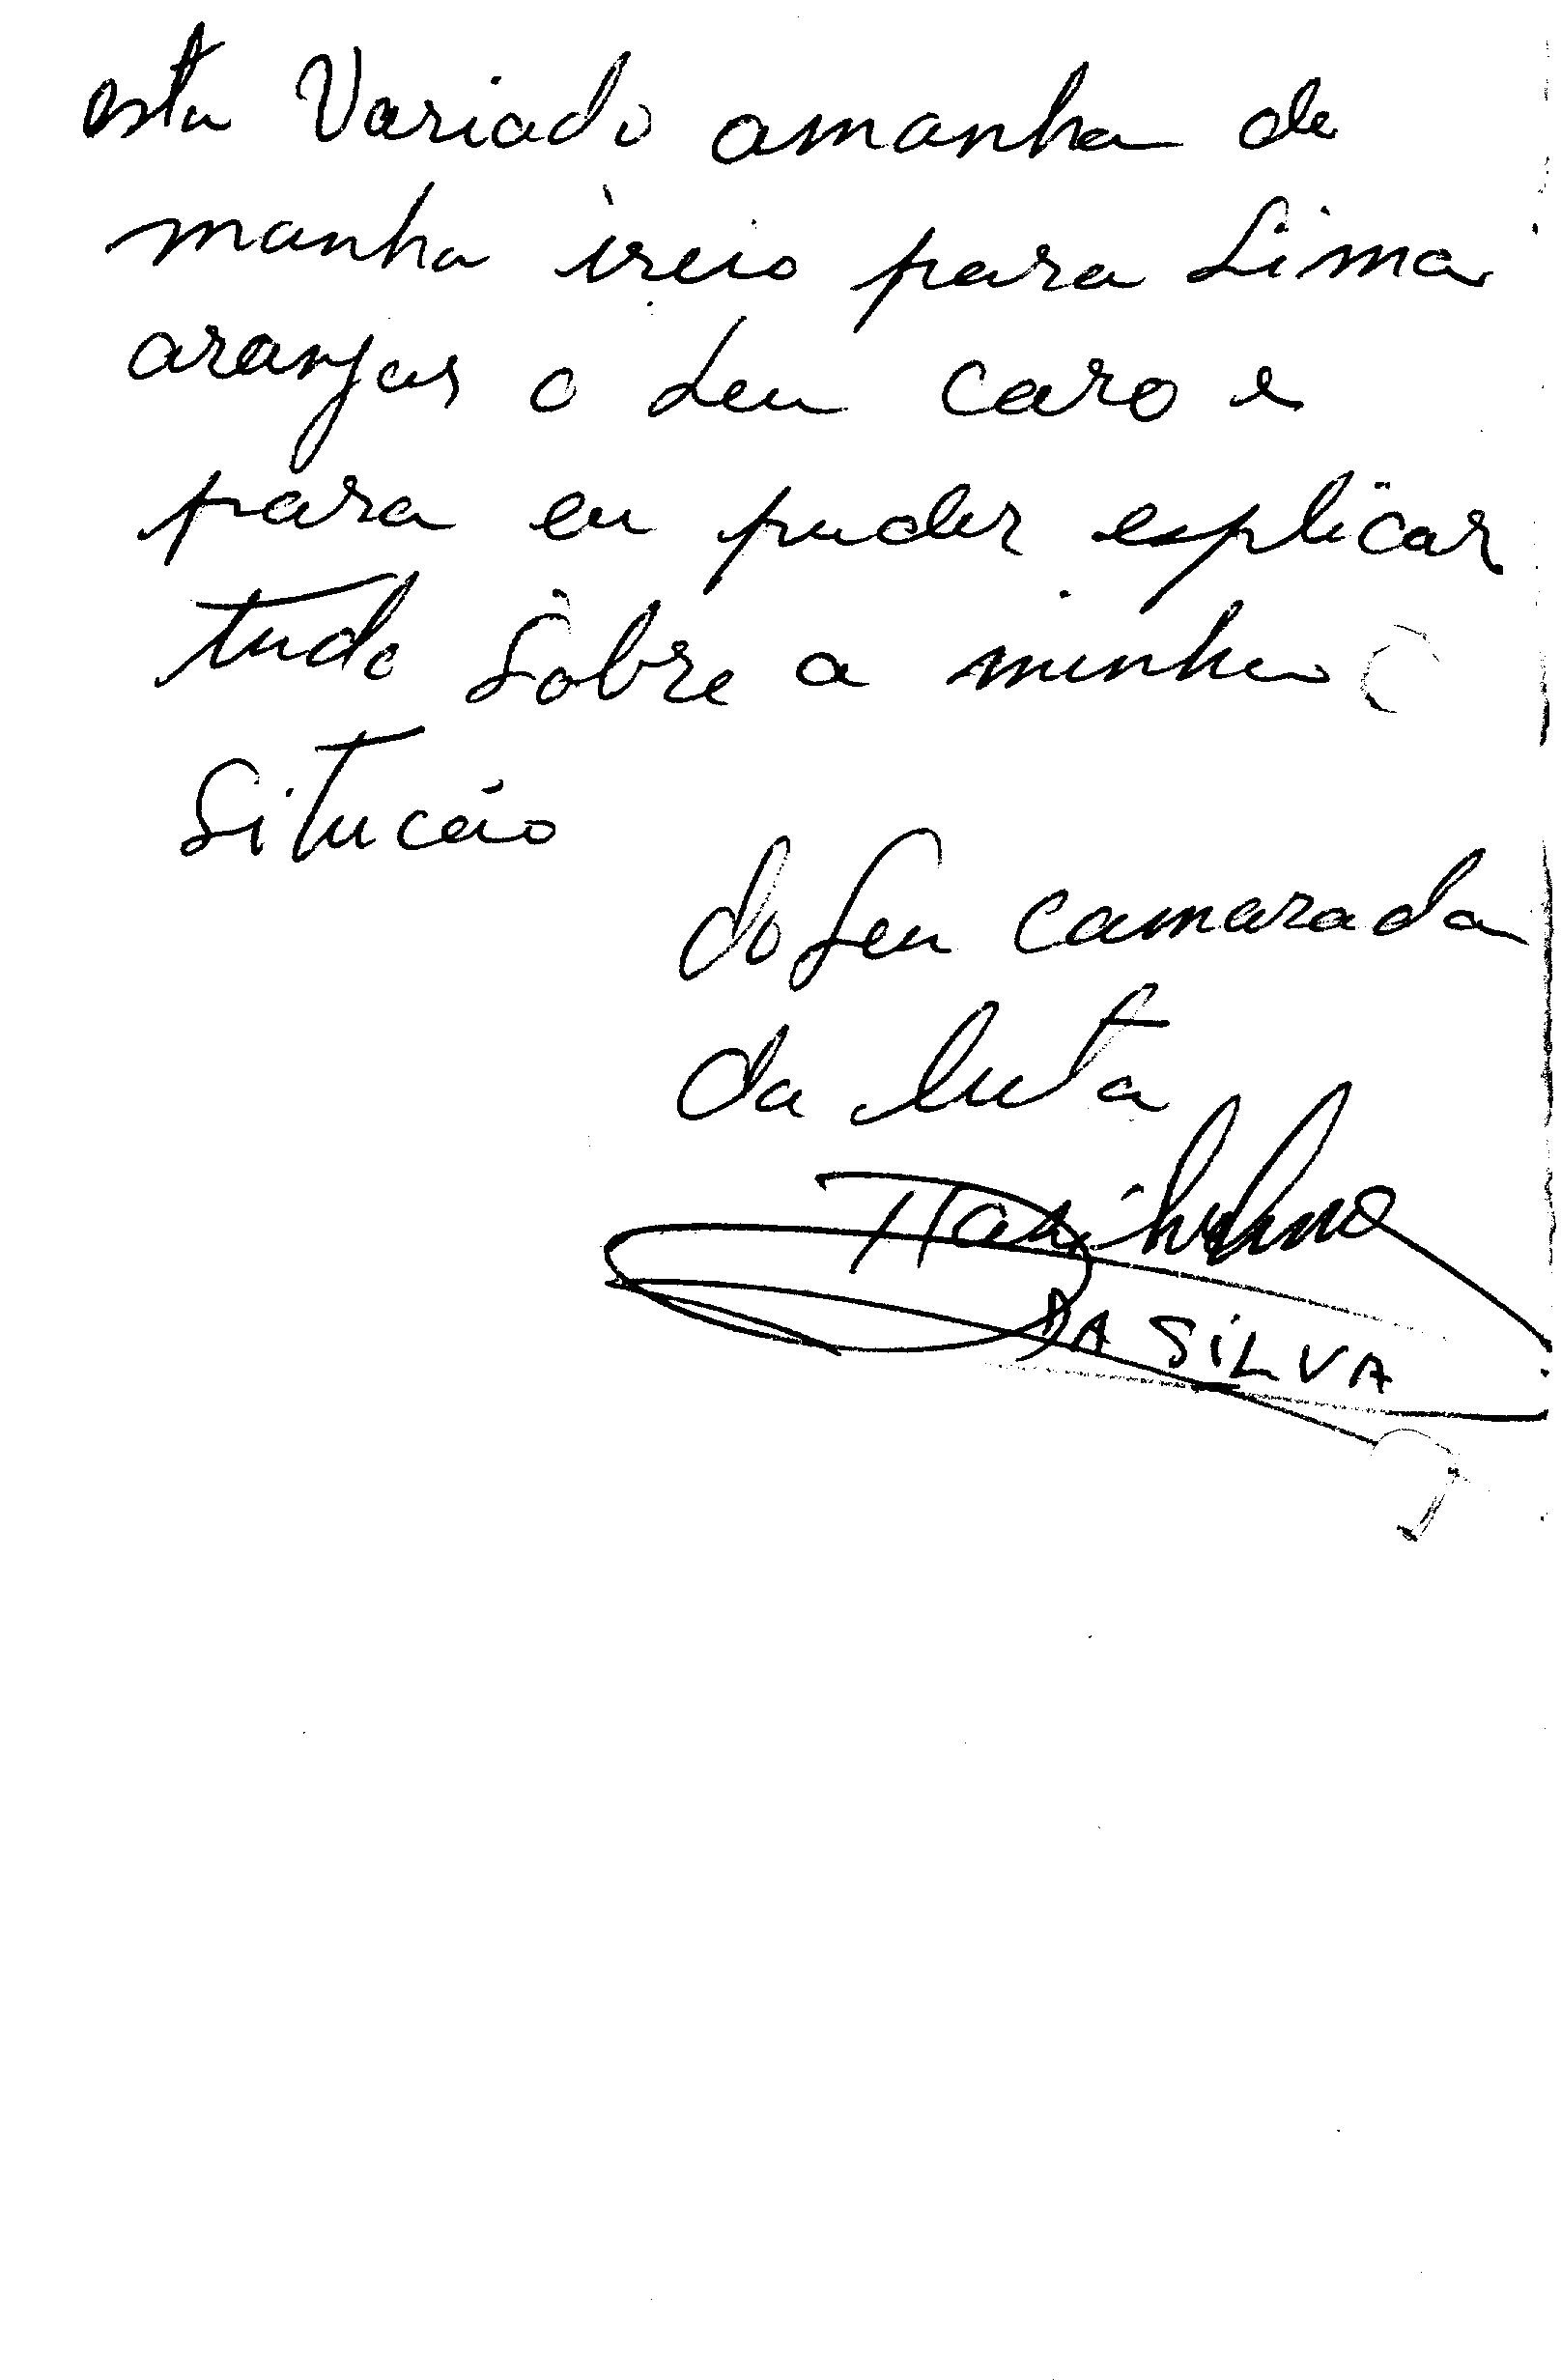 esta Variado amanha de
manha ireio para Lima
aranjar o seu caro e
para eu puder esplicar
tudo Sobre a minha
Situcão
do seu camarada
da luta
DA SILVA